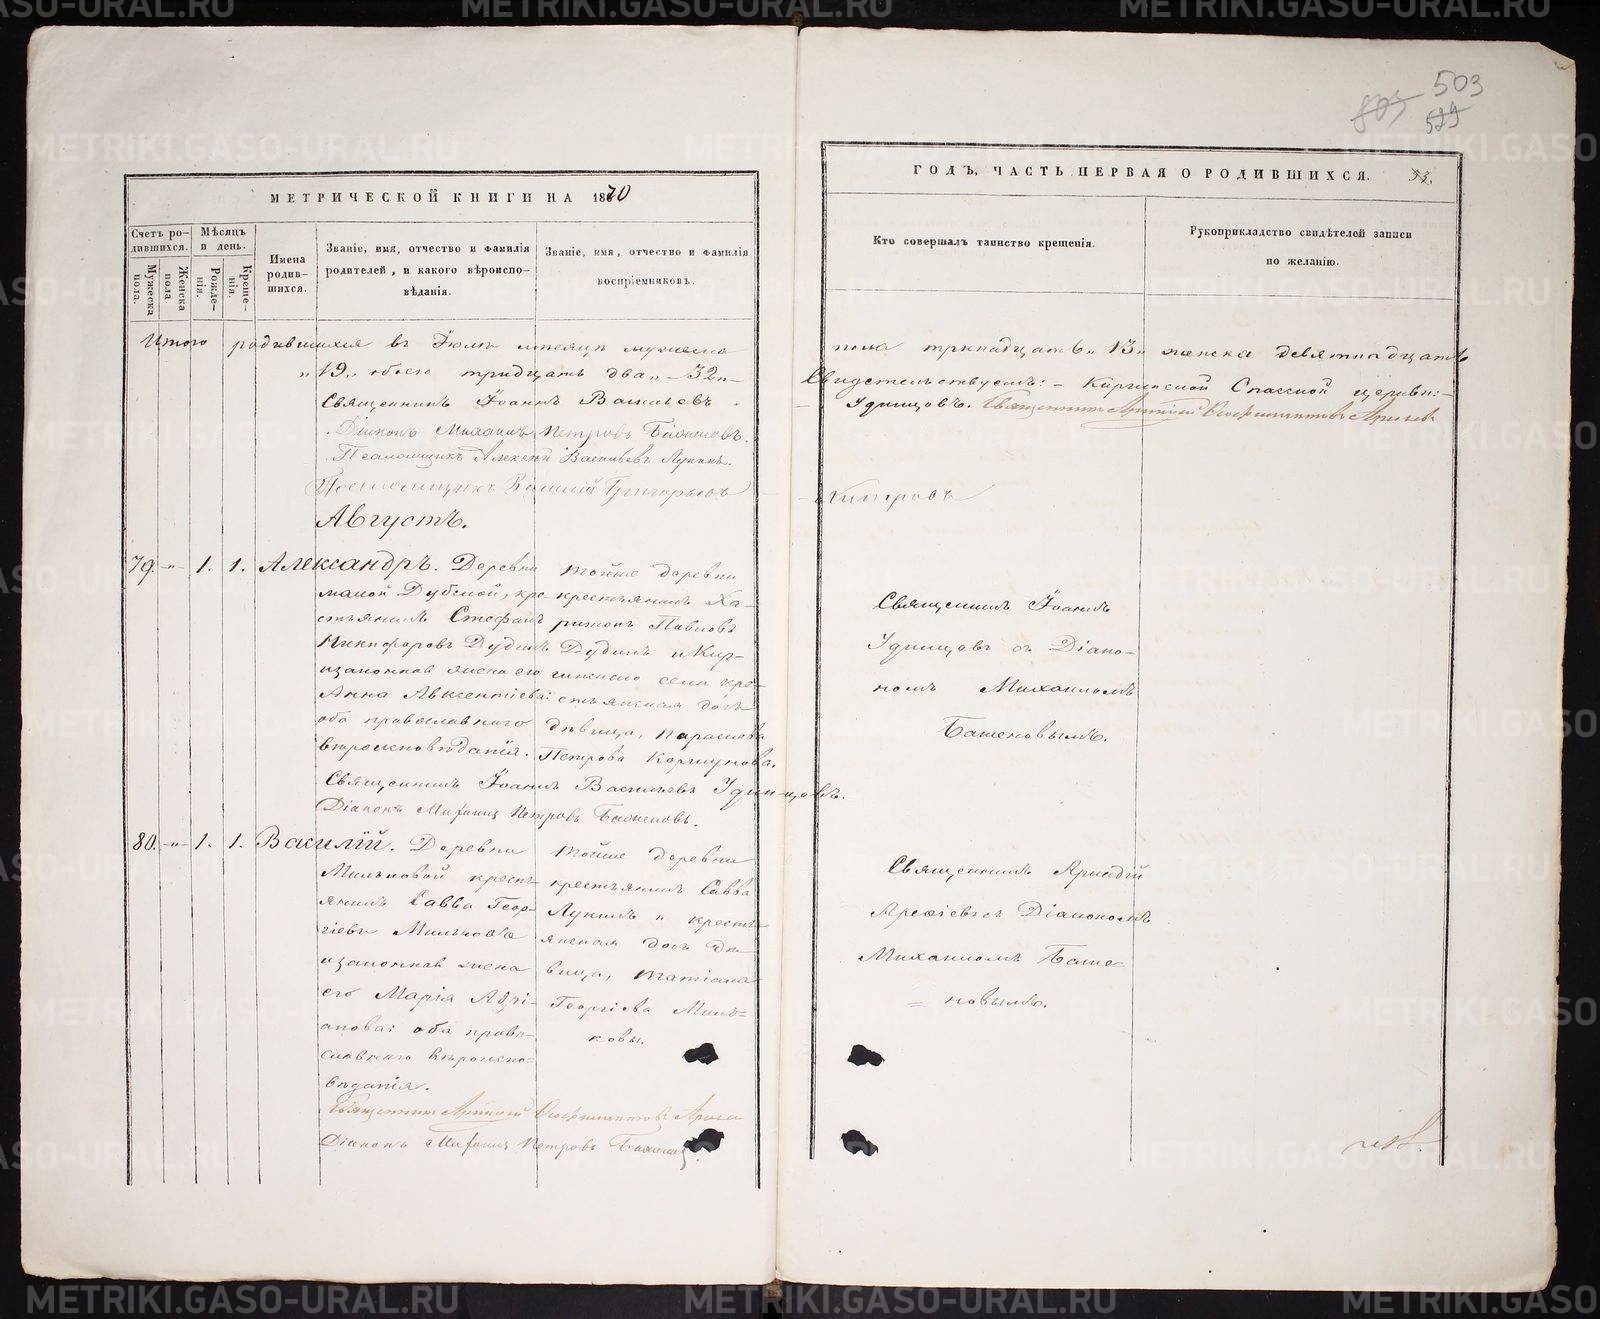 503
МЕТРИЧЕСКОЙ КНИГИ НА 1870
ГОДЪ, ЧАСТЬ ПЕРВАЯ О РОДИВШИХСЯ.
Счетъ ро-
дившихся.
Мужеска
пола.
Женска
пола
Мѣсяцъ
и день.
Рожде-
нія.
Креще-
нія.
Имена
родив-
шихся.
Званіе, имя, отчество и фамилія
родителей, и какого вѣроиспо-
вѣданія.
Званіе, имя, отчество и фамилія
воспріемниковъ.
Кто совершалъ таинство крещенія.
Рукоприкладство свидѣтелей записи
по желанію.
Итого родившихся въ Іюлѣ мѣсяцѣ мужеска
пола тринадцать „13„ женска девятнадцать
„19„ обоего тридцать два „32„
Свидетельствуемъ: Киргинской Спасской церкви:
Священникъ Іоаннъ Васильевъ
Удинцовъ. Священникъ
Діаконъ Михаилъ Петровъ Баженовъ.
Псаломщикъ Алексѣй Васильевъ Лукинъ.
Псаломщикъ Василій Григорьевъ
Августъ.
79. „ 1. 1. Александръ.
Деревни
малой Дубской, кре-
стьянинъ Стефанъ
Никифоровъ Дудинъ
и законная жена его
Анна Авксентіева:
оба православного
вѣроисповѣданія.
тойже деревни
крестьянинъ Ха-
ритонъ Павловъ
Дудинъ и Кир-
гинскаго села кре-
стьянская дочь
дѣвица, Параскева
Петрова Коршунова.
Священникъ Іоаннъ
Удинцовъ съ Діако-
номъ Михаиломъ
Баженовымъ.
Священникъ Іоаннъ Васильевъ Удинцовъ.
Діаконъ Михаилъ Петровъ Баженовъ.
80. „ 1. 1. Василій.
Деревни
Мильковой кресть-
янинъ Савва Геор-
гіевъ Мильковъ
и законная жена
его Марія Адрі-
анова: оба право-
славного вѣроиспо-
вѣданія.
тойже деревни
крестьянинъ Савва
Лукинъ „ кресть-
янская дочь дѣ-
вица, Татіана
Георгіева Миль-
ковы.
Священникъ Аркадій
Арефіевъ съ Діакономъ
Михаиломъ Баже-
новымъ.
Священникъ Аркадій
Діаконъ Михаилъ Петровъ Баженовъ.
METRIKI.GASO-URAL.RU